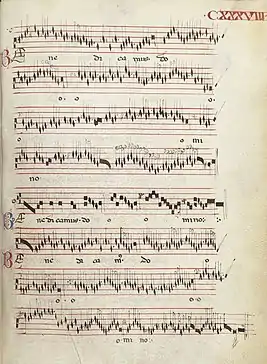 CXXXVIII
Be ne di ca mus do
o o o
o mi
no
Be nedicamus do o o mino:
Be ne di ca mꝰ do
o o o o
o mi no: